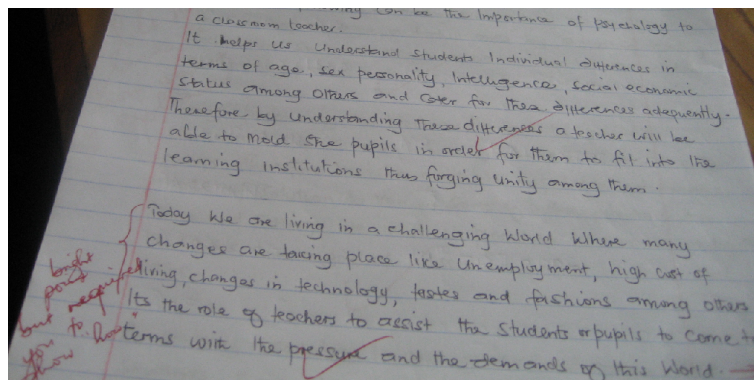 can be the Importance of psychology to
a classroom teacher.
It helps us understand students Individual differences in
terms of age, sex personality, Intelligence, social economic
status among others and cater for these differences adequently.
Therefore by understanding these differences a teacher will be
able to mold the pupils in order for them to fit into the
learning institutions thus forging unity among them.
Today we are living in a challenging World Where many
changes are taking place like Unemployment, high cost of
living, changes in technology, tastes and fashions among others
Its the role of teachers to assist the students or pupils to come to
terms with the pressure and the demands of this World.
bright
point
but required
you to
show how